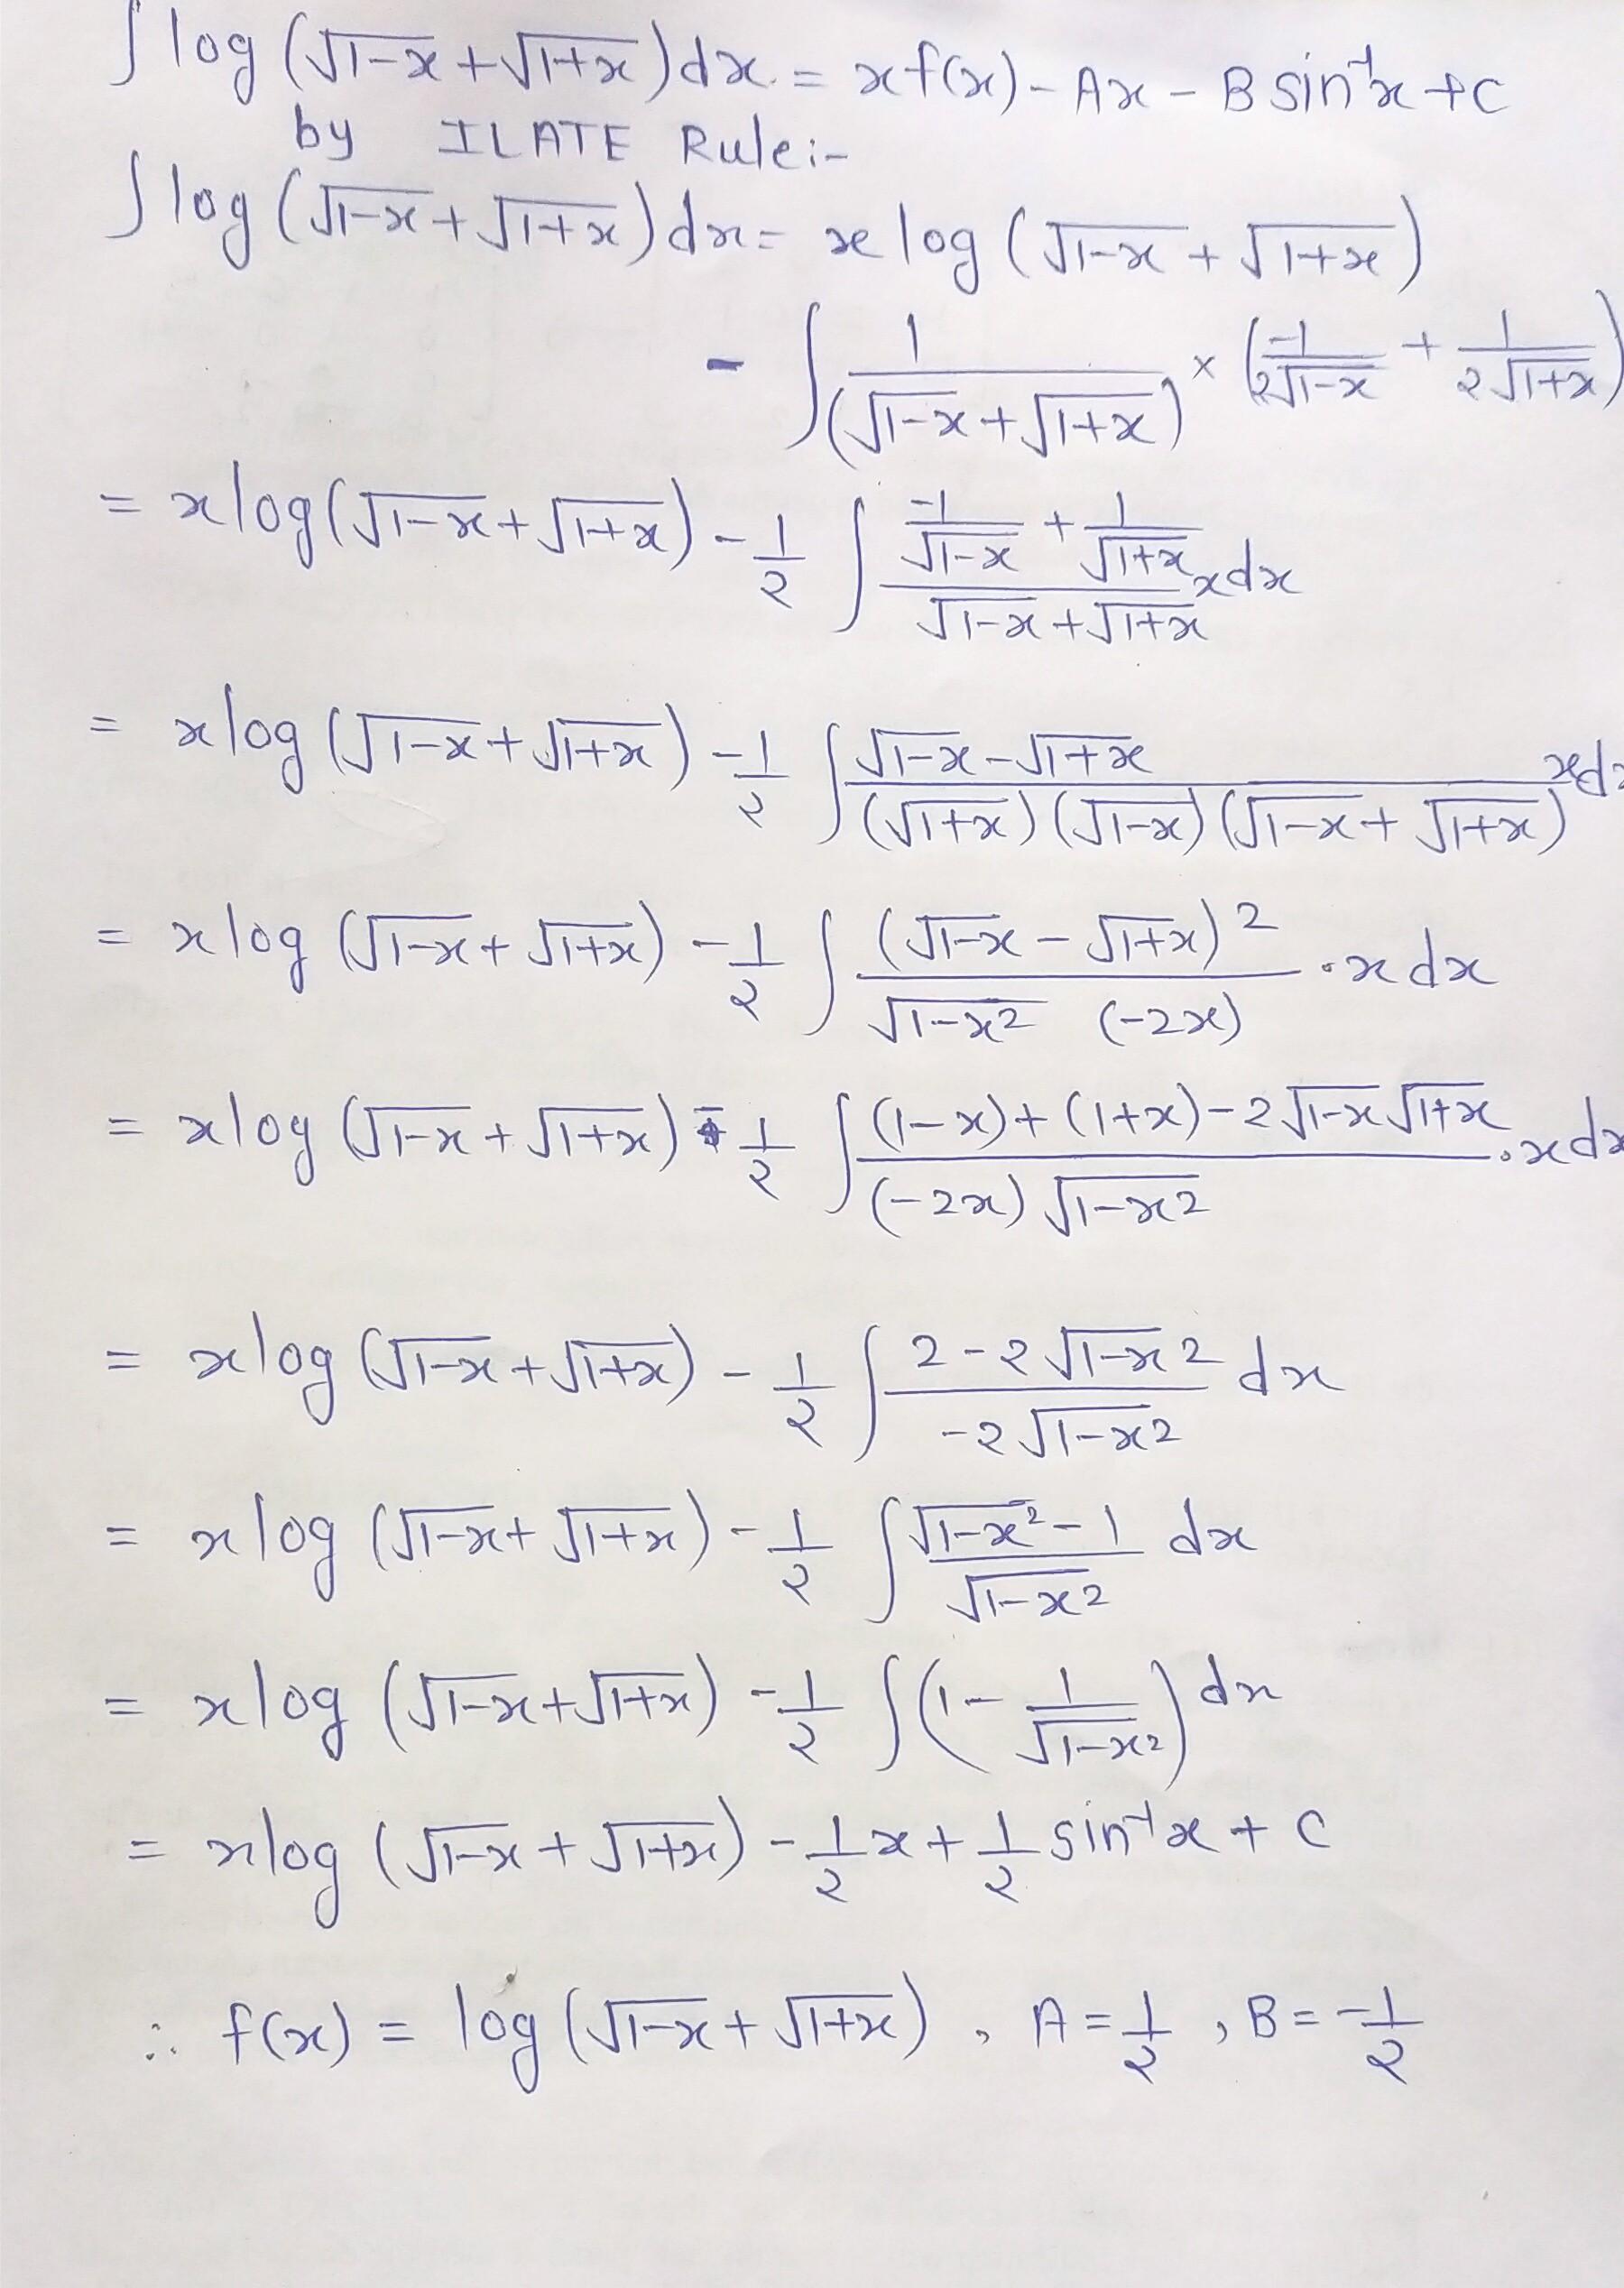 ∫ log (√1-x + √1+x) dx = x f(x) - Ax - B sin⁻¹x + C
by ILATE Rule:-
∫ log (√1-x + √1+x) dx = x log (√1-x + √1+x)
- ∫ 1/(√1-x + √1+x) × (-1/2√1-x + 1/2√1+x)
= x log(√1-x + √1+x) - 1/2 ∫ (-1/√1-x + 1/√1+x)/(√1-x + √1+x) x dx
= x log (√1-x + √1+x) - 1/2 ∫ (√1-x - √1+x)/((√1+x) (√1-x) (√1-x + √1+x)) x dx
= x log (√1-x + √1+x) - 1/2 ∫ (√1-x - √1+x)²/(√1-x² (-2x)) · x dx
= x log (√1-x + √1+x) - 1/2 ∫ ((1-x) + (1+x) - 2√1-x √1+x)/((-2x) √1-x²) · x dx
= x log (√1-x + √1+x) - 1/2 ∫ (2 - 2√1-x²)/(-2√1-x²) dx
= x log (√1-x + √1+x) - 1/2 ∫ (√1-x² - 1)/√1-x² dx
= x log (√1-x + √1+x) - 1/2 ∫ (1 - 1/√1-x²) dx
= x log (√1-x + √1+x) - 1/2 x + 1/2 sin⁻¹x + C
∴ f(x) = log (√1-x + √1+x) , A = 1/2 , B = -1/2